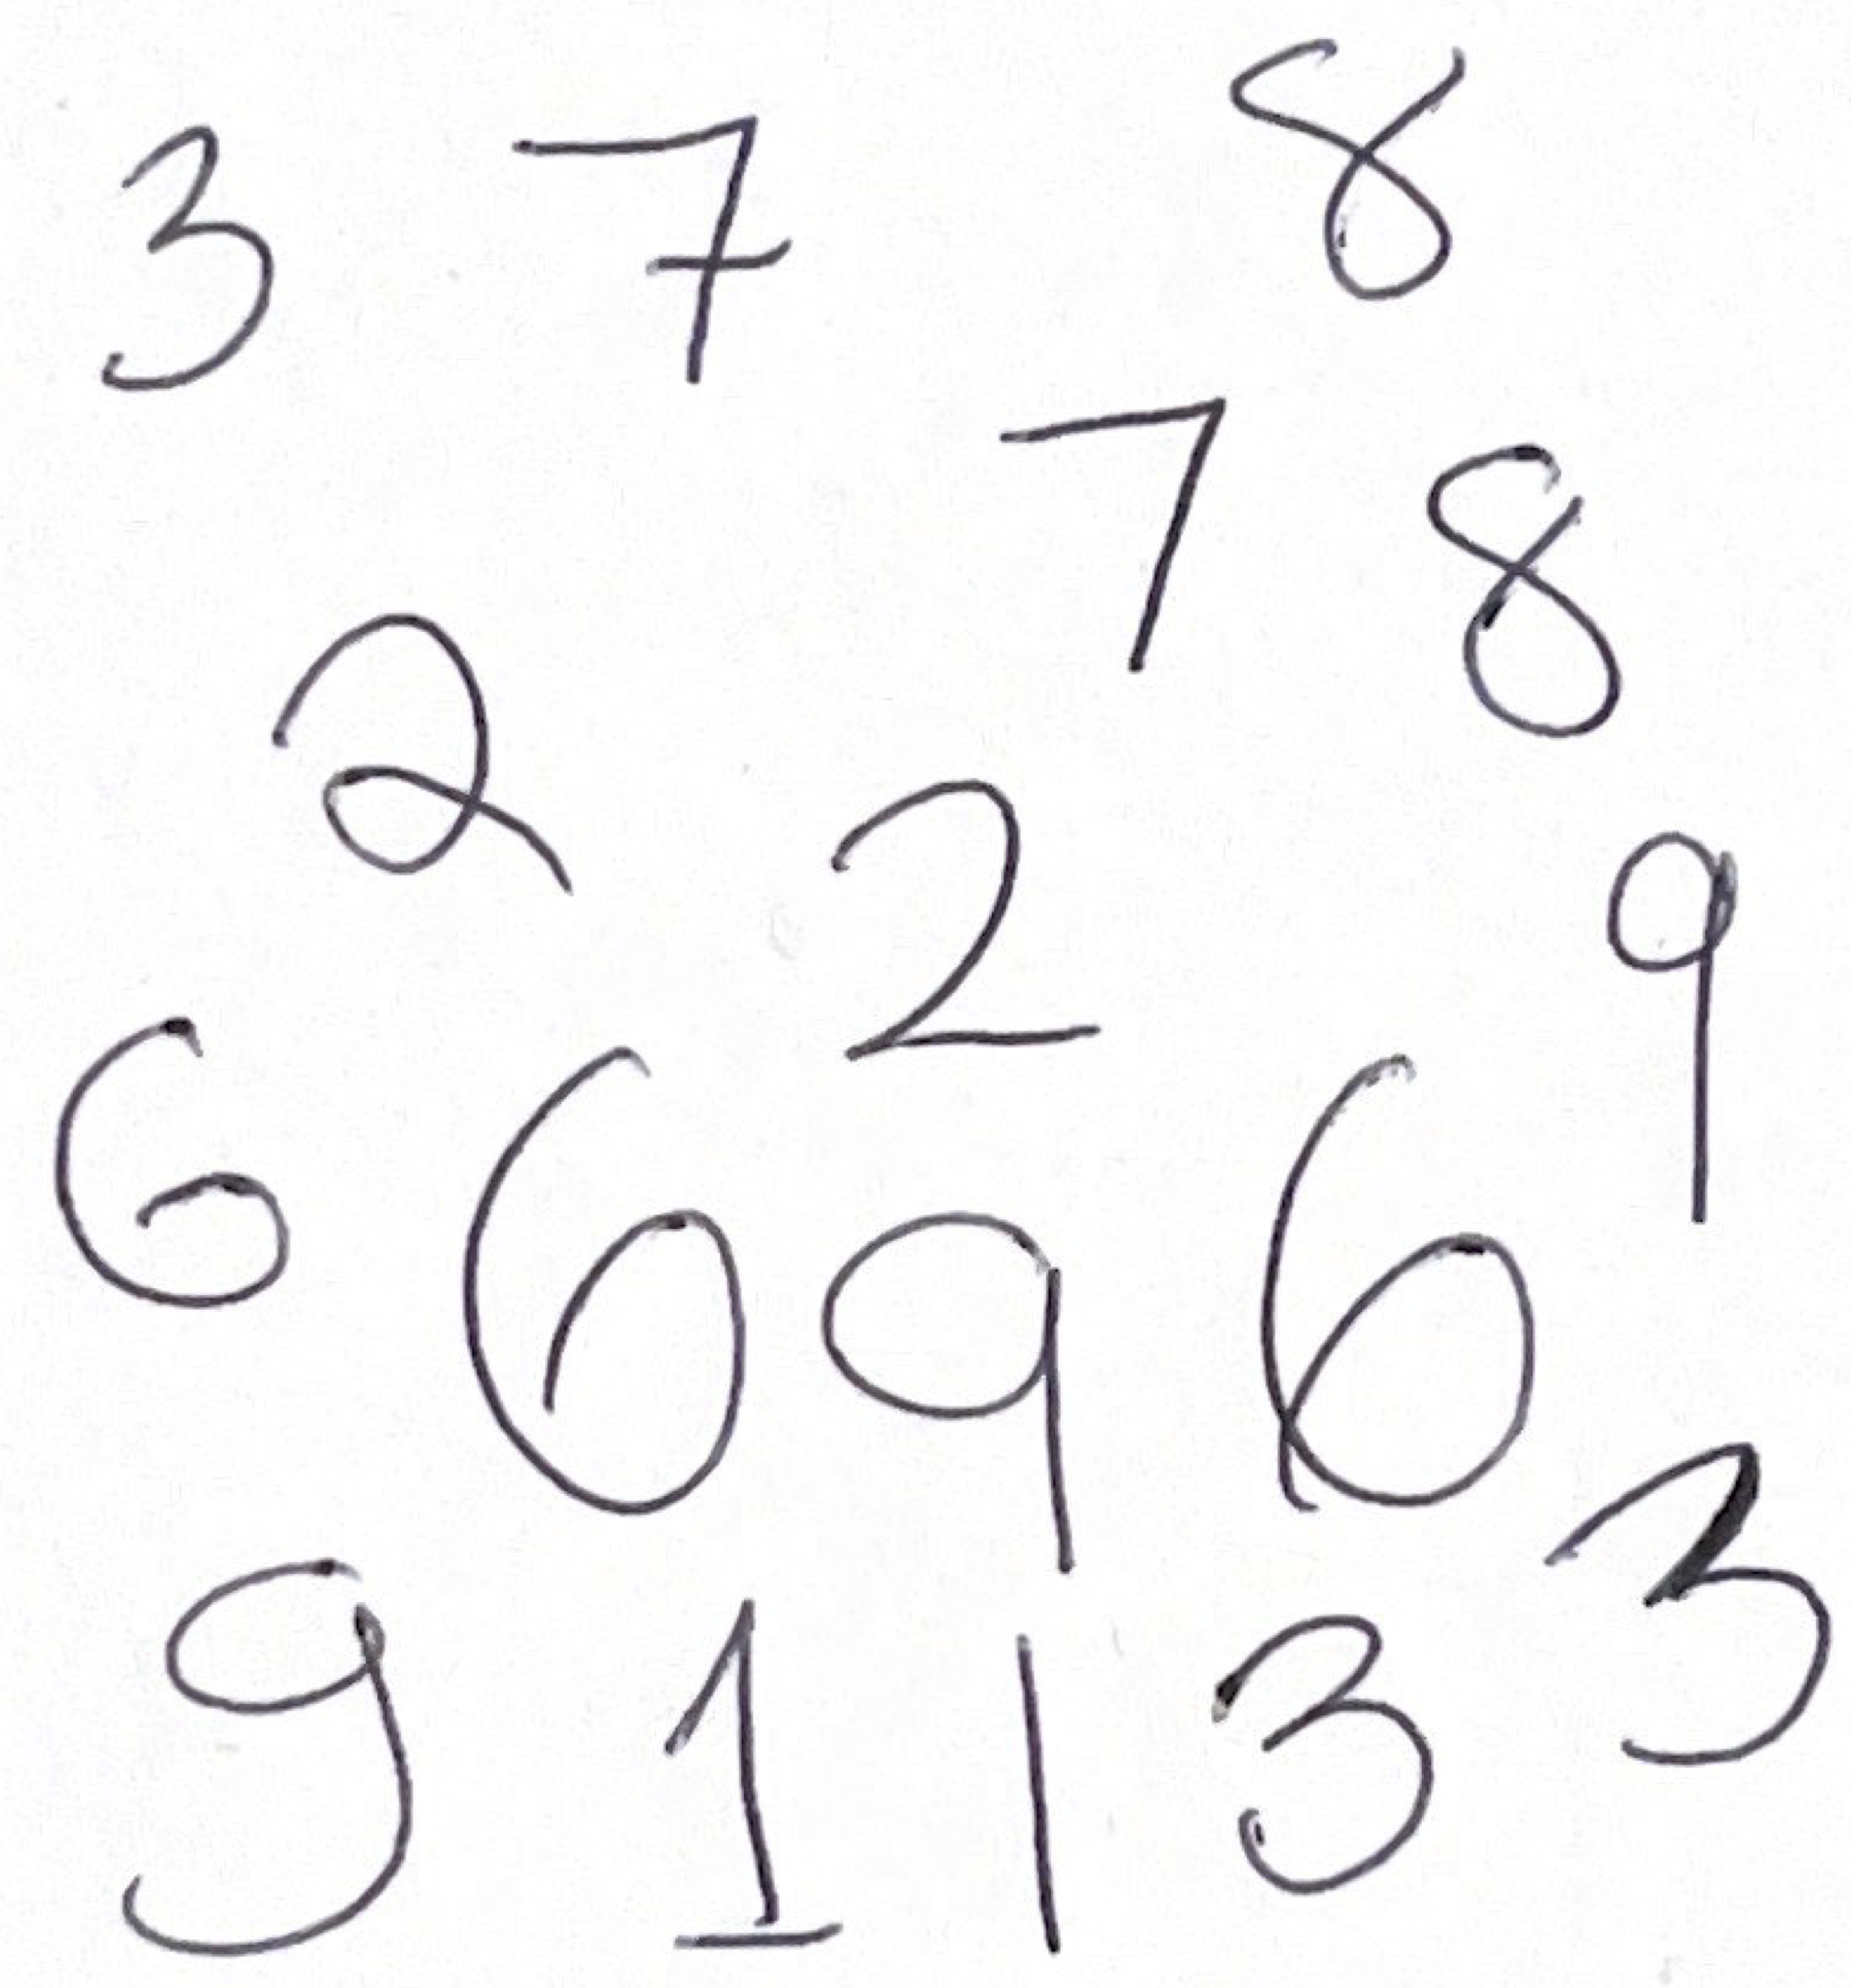 3 7 8
7 8
2 2 9
6 6 9 6
9 1 1 3 3